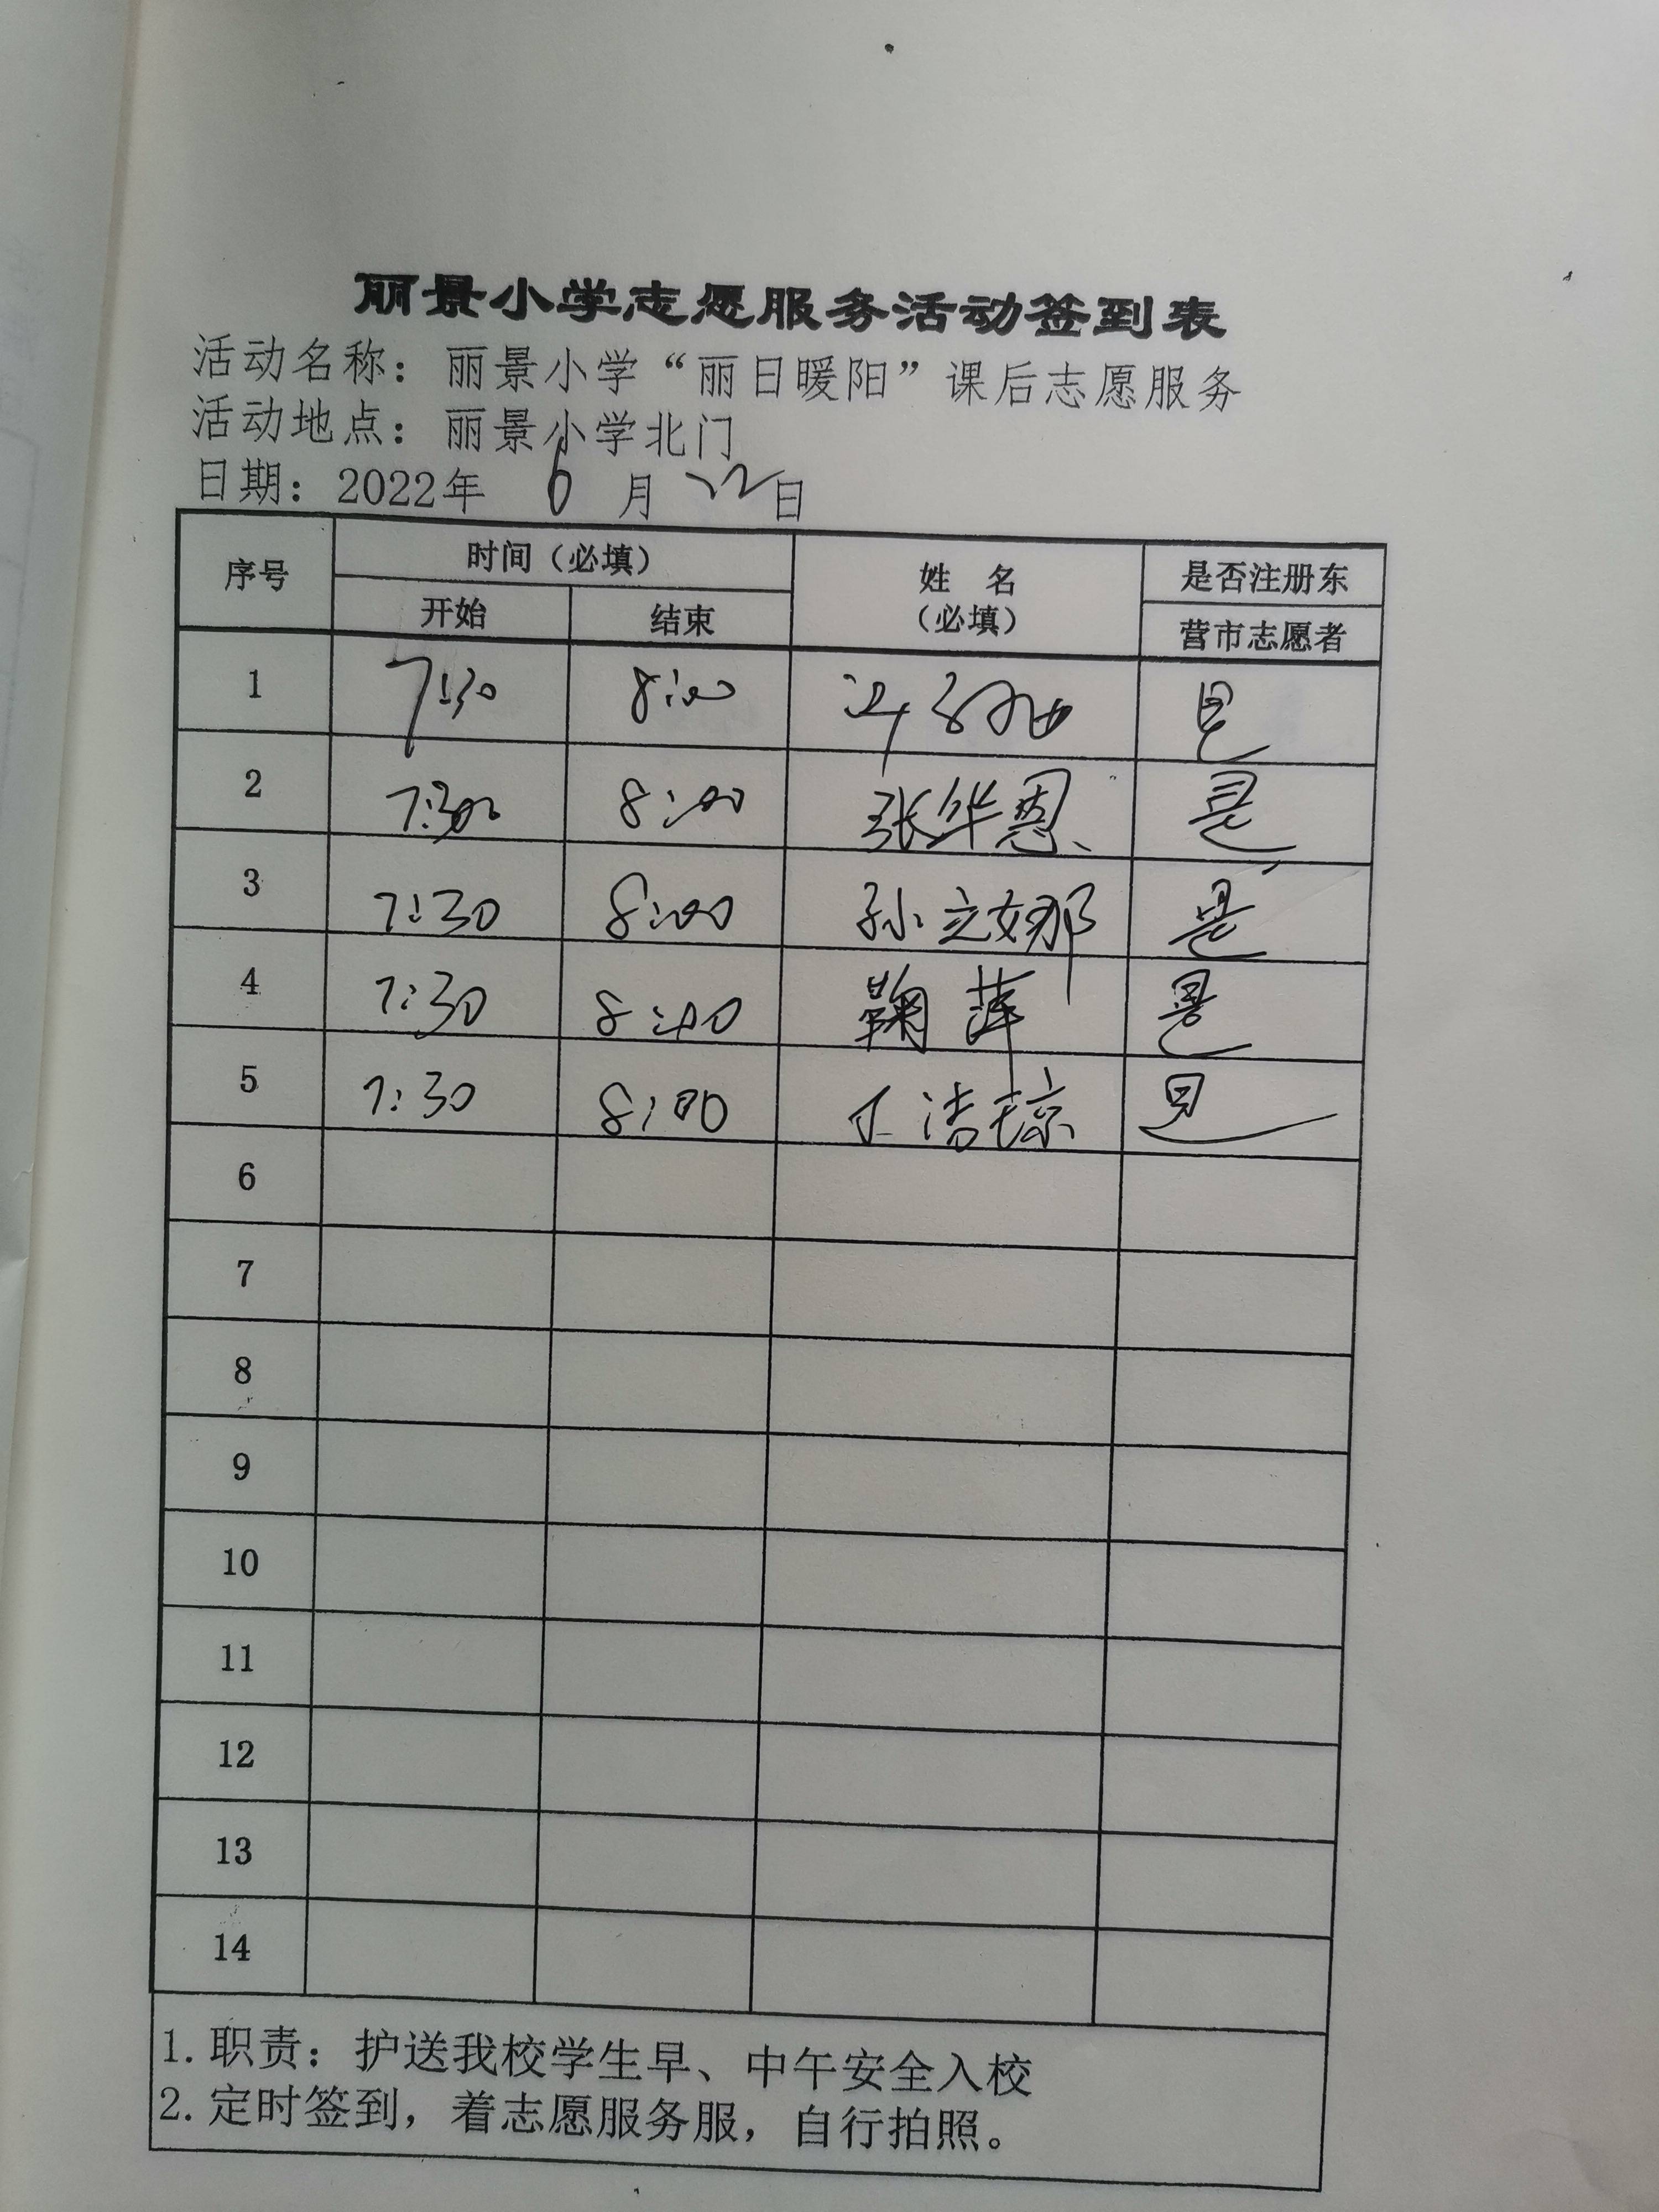 丽景小学志愿服务活动签到表
活动名称：丽景小学“丽日暖阳”课后志愿服务
活动地点：丽景小学北门
日期：2022年 6 月 22日
序号 时间（必填） 姓 名 （必填） 是否注册东
开始 结束 营市志愿者
1 7:30 8:00 是
2 7:30 8:00 张华恩 是
3 7:30 8:00 孙文娜 是
4 7:30 8:00 鞠萍 是
5 7:30 8:00 洁琼 是
6
7
8
9
10
11
12
13
14
1.职责：护送我校学生早、中午安全入校
2.定时签到，着志愿服务服，自行拍照。